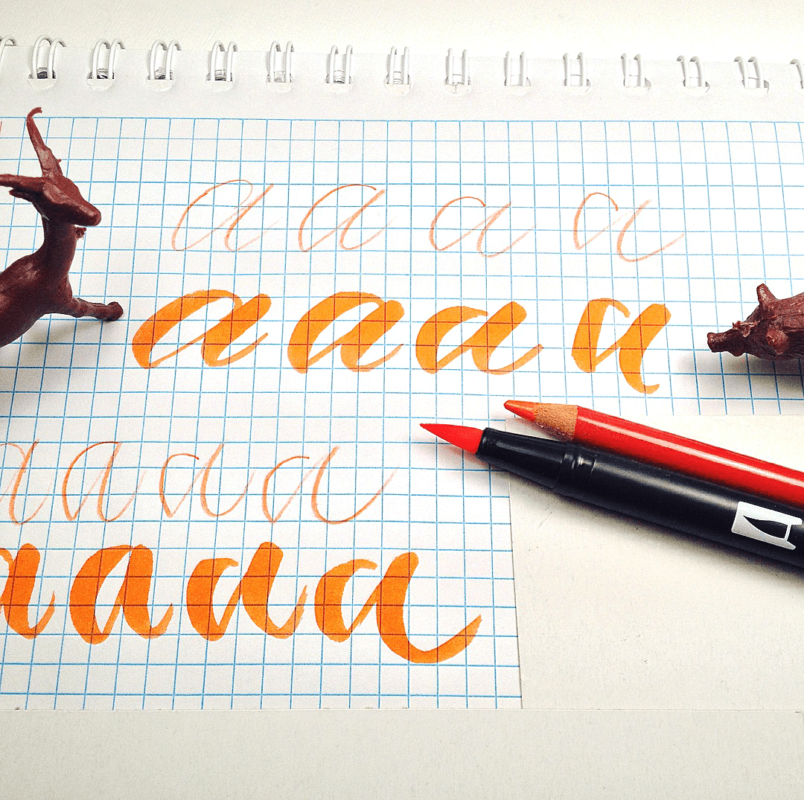 a a a a
a a a a
a a a a
a a a a